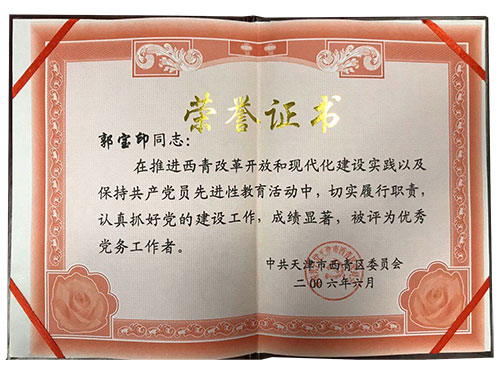 荣誉证书
郭宝印同志：
在推进西青改革开放和现代化建设实践以及
保持共产党员先进性教育活动中，切实履行职责，
认真抓好党的建设工作，成绩显著，被评为优秀
党务工作者。
中共天津市西青区委员会
二〇〇六年六月